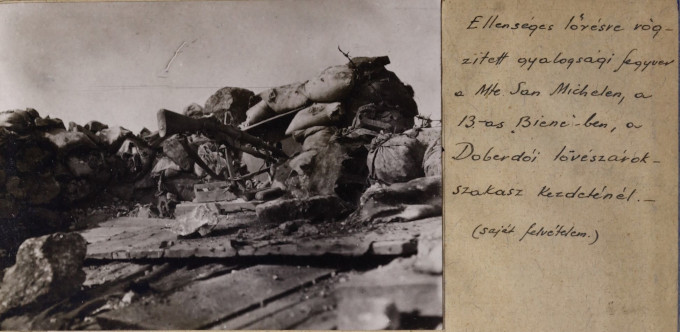 Ellenséges lőrésre rög-
zített gyalogsági fegyver
a Mte San Michelen, a
13.-as „Biene"-ben, a
Doberdói lövészárok-
szakasz kezdeténél.-
(saját felvételem.)